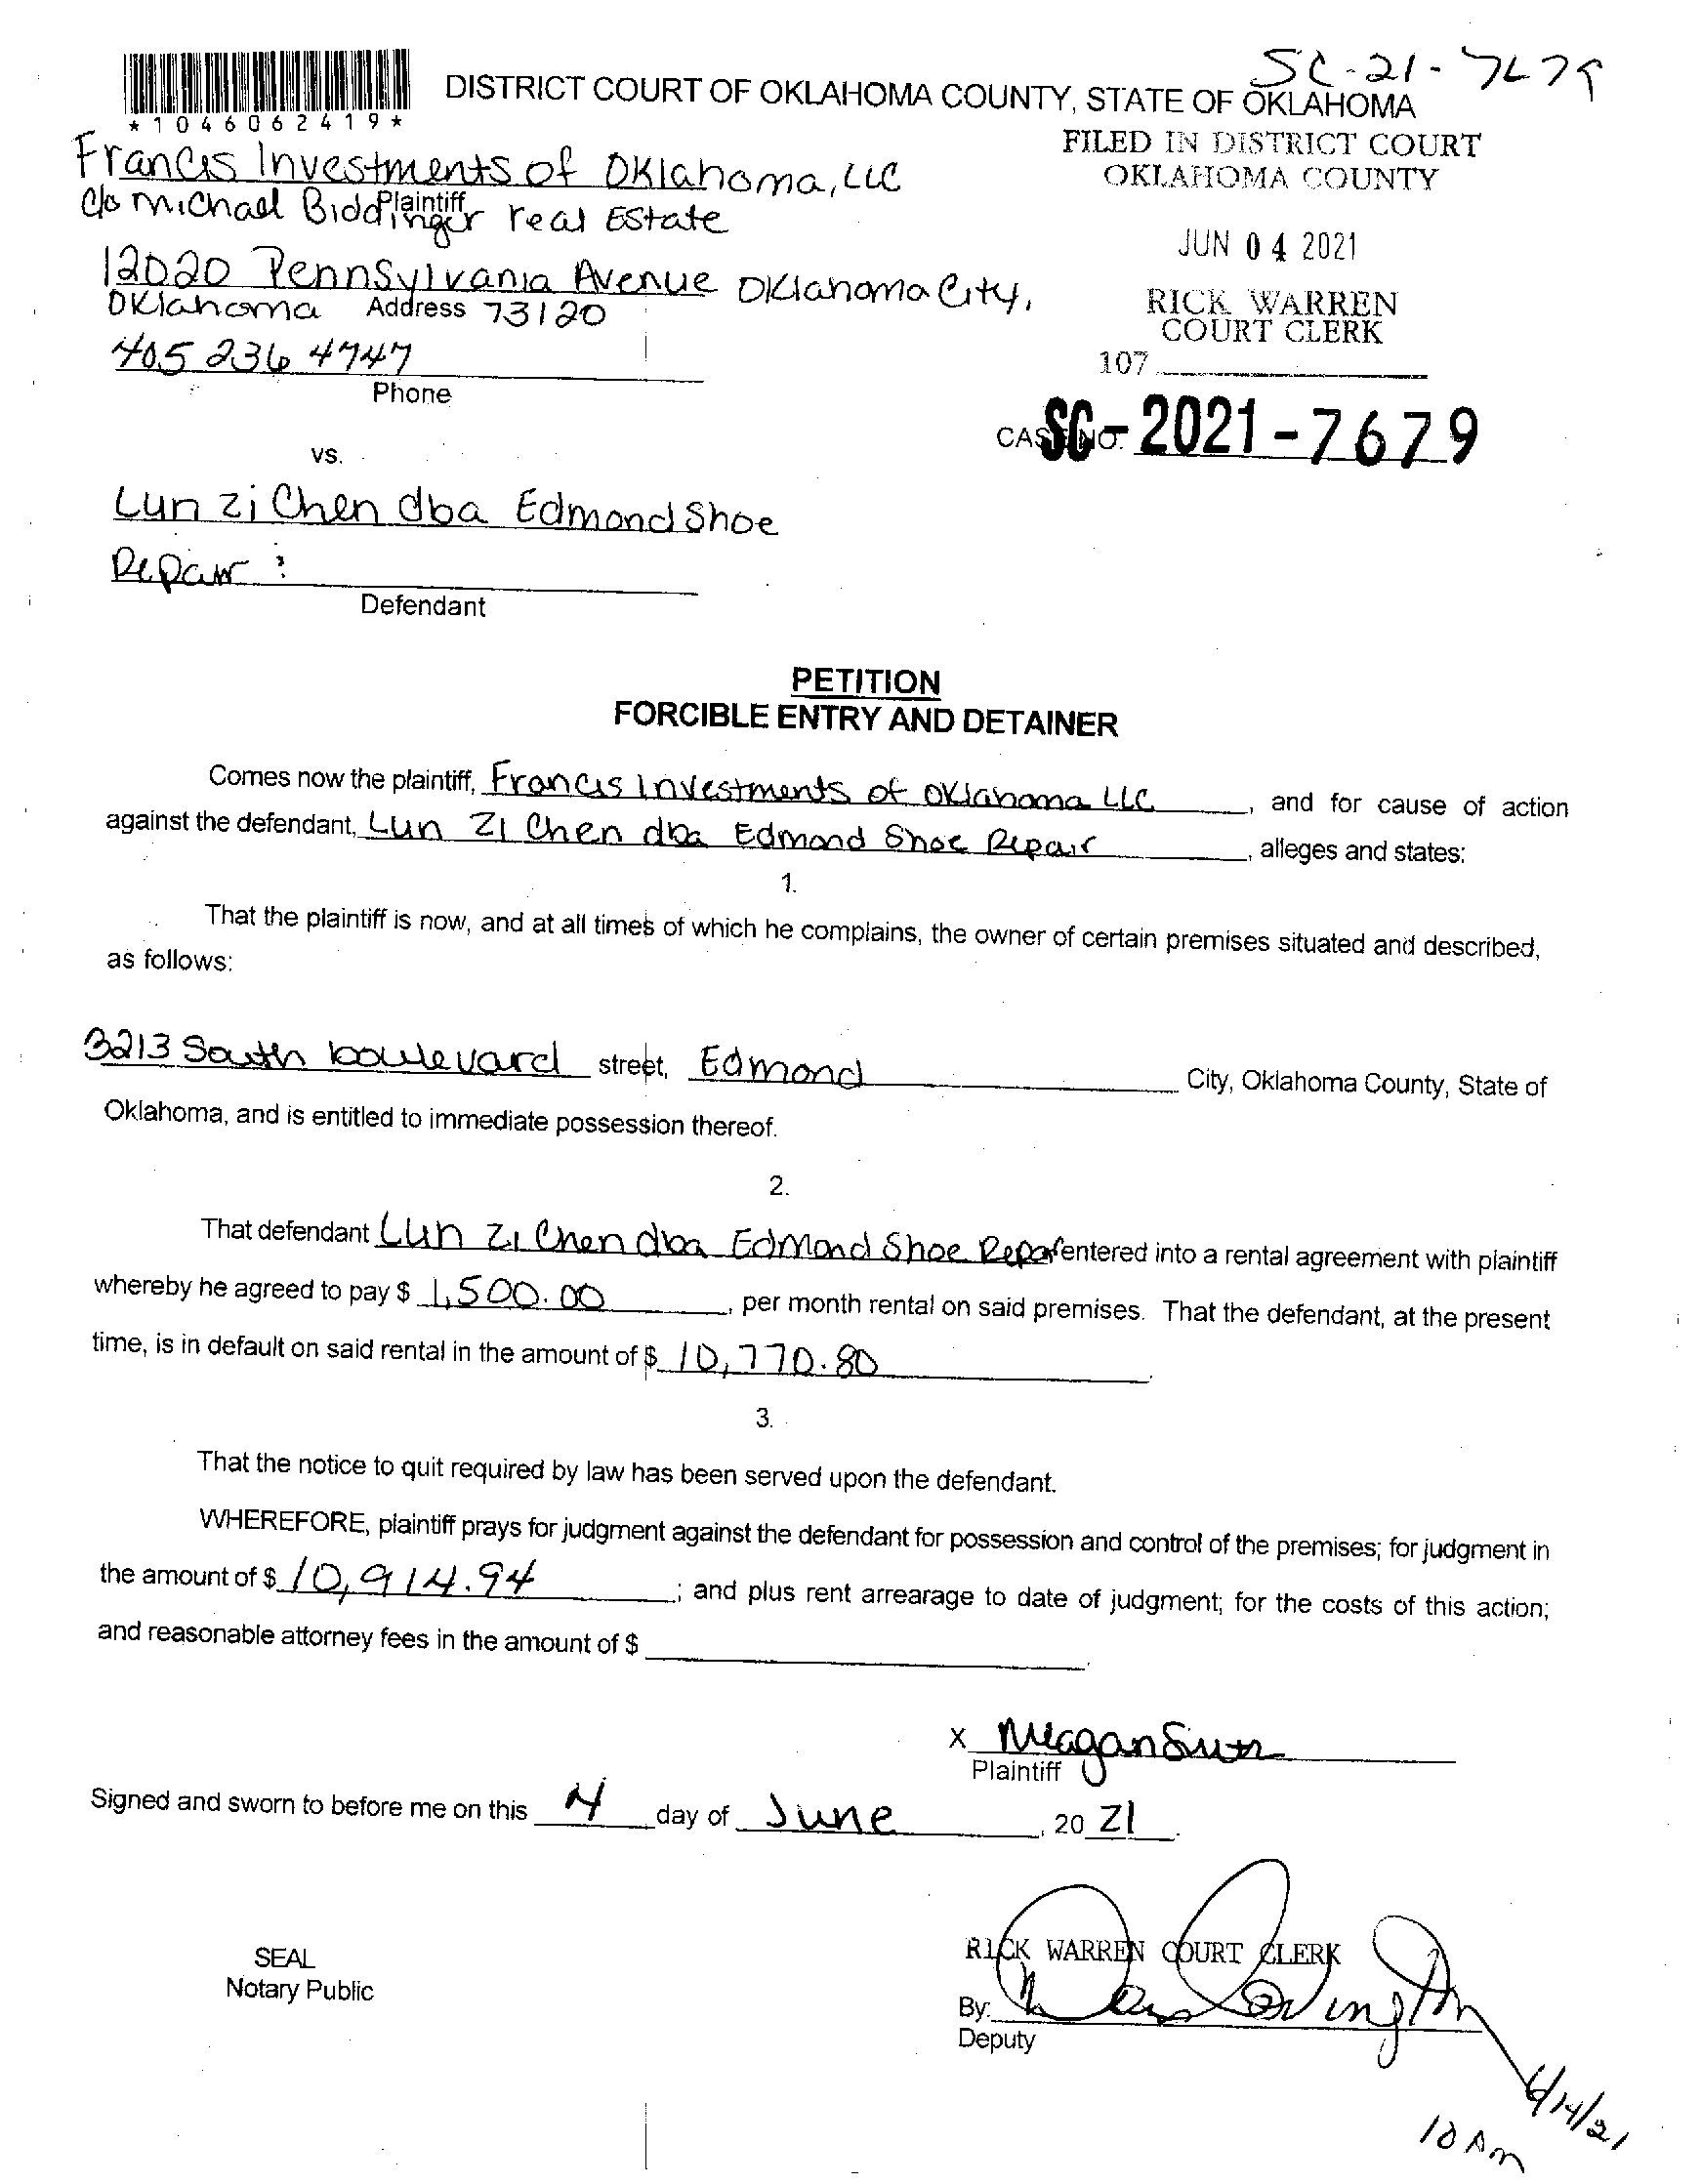 SC-21-7679
DISTRICT COURT OF OKLAHOMA COUNTY, STATE OF OKLAHOMA
*1046062419*
FILED IN DISTRICT COURT
OKLAHOMA COUNTY
Francis Investments of Oklahoma, LLC
c/o Michael Biddinger real Estate
Plaintiff
JUN 04 2021
12020 Pennsylvania Avenue Oklahoma City,
Oklahoma 73120
Address
RICK WARREN
COURT CLERK
405 236 4747
107
Phone
CASE NO. SC-2021-7679
vs.
Lun Zi Chen dba Edmond Shoe
Repair :
Defendant
PETITION
FORCIBLE ENTRY AND DETAINER
Comes now the plaintiff, Francis Investments of Oklahoma LLC, and for cause of action
against the defendant, Lun Zi Chen dba Edmond Shoe Repair, alleges and states:
1.
That the plaintiff is now, and at all times of which he complains, the owner of certain premises situated and described,
as follows:
3213 South boulevard street, Edmond City, Oklahoma County, State of
Oklahoma, and is entitled to immediate possession thereof.
2.
That defendant Lun Zi Chen dba Edmond Shoe Repair entered into a rental agreement with plaintiff
whereby he agreed to pay $ 1,500.00, per month rental on said premises. That the defendant, at the present
time, is in default on said rental in the amount of $ 10,770.80.
3.
That the notice to quit required by law has been served upon the defendant.
WHEREFORE, plaintiff prays for judgment against the defendant for possession and control of the premises; for judgment in
the amount of $ 10,914.94; and plus rent arrearage to date of judgment; for the costs of this action;
and reasonable attorney fees in the amount of $
X Meagan
Plaintiff
Signed and sworn to before me on this 4 day of June, 20 21.
SEAL
Notary Public
RICK WARREN COURT CLERK
By:
Deputy
6/14/21
10 Am